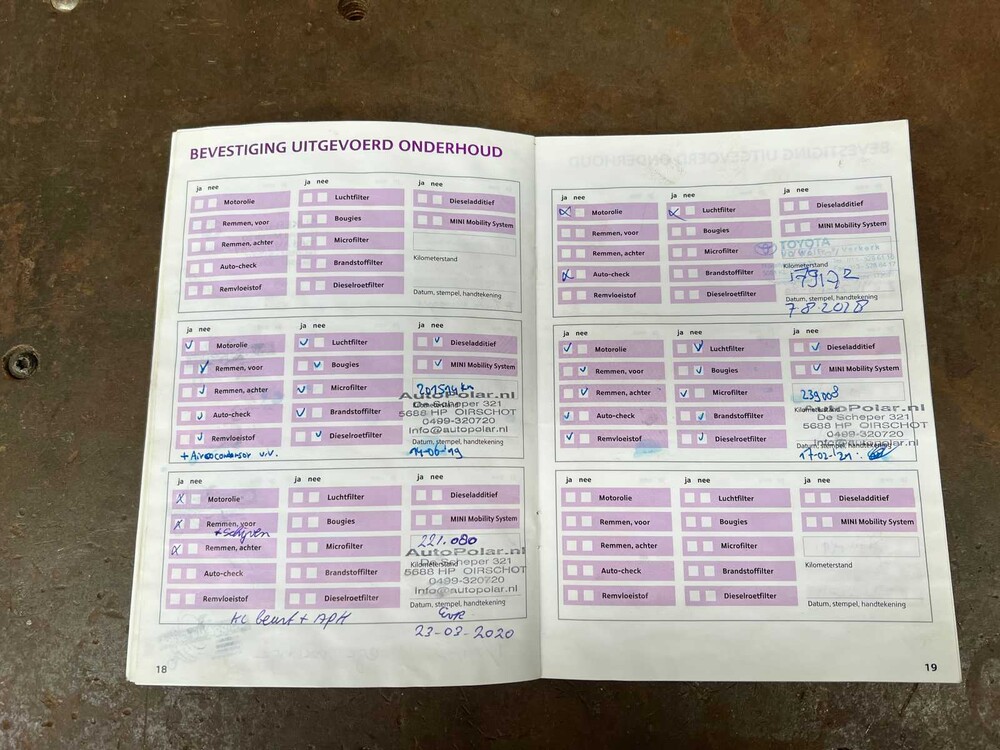 BEVESTIGING UITGEVOERD ONDERHOUD
ja nee
Motorolie
Remmen, voor
Remmen, achter
Auto-check
Remvloeistof
ja nee
Luchtfilter
Bougies
Microfilter
Brandstoffilter
Dieselroetfilter
ja nee
Dieseladditief
MINI Mobility System
Kilometerstand
Datum, stempel, handtekening
ja nee
Motorolie
Remmen, voor
Remmen, achter
Auto-check
Remvloeistof
+ Aircocondensor v.v.
ja nee
Luchtfilter
Bougies
Microfilter
Brandstoffilter
Dieselroetfilter
ja nee
Dieseladditief
MINI Mobility System
km
AutoPolar.nl
Kilometerstand
De Scheper 321
5688 HP OIRSCHOT
0499-320720
Info@autopolar.nl
Datum, stempel, handtekening
14-06-'19
ja nee
Motorolie
Remmen, voor
+ Schijven
Remmen, achter
Auto-check
Remvloeistof
ja nee
Luchtfilter
Bougies
Microfilter
Brandstoffilter
Dieselroetfilter
KL beurt + APK
ja nee
Dieseladditief
MINI Mobility System
221.080
AutoPolar.nl
Kilometerstand
De Scheper 321
5688 HP OIRSCHOT
0499-320720
Info@autopolar.nl
Datum, stempel, handtekening
23-03-2020
18
ja nee
Motorolie
Remmen, voor
Remmen, achter
Auto-check
Remvloeistof
ja nee
Luchtfilter
Bougies
Microfilter
Brandstoffilter
Dieselroetfilter
ja nee
Dieseladditief
MINI Mobility System
TOYOTA
Kilometerstand
179172
Datum, stempel, handtekening
ja nee
Motorolie
Remmen, voor
Remmen, achter
Auto-check
Remvloeistof
ja nee
Luchtfilter
Bougies
Microfilter
Brandstoffilter
Dieselroetfilter
ja nee
Dieseladditief
MINI Mobility System
239008
AutoPolar.nl
Kilometerstand
De Scheper 321
5688 HP OIRSCHOT
0499-320720
Info@autopolar.nl
Datum, stempel, handtekening
17-02-'21
ja nee
Motorolie
Remmen, voor
Remmen, achter
Auto-check
Remvloeistof
ja nee
Luchtfilter
Bougies
Microfilter
Brandstoffilter
Dieselroetfilter
ja nee
Dieseladditief
MINI Mobility System
Kilometerstand
Datum, stempel, handtekening
19